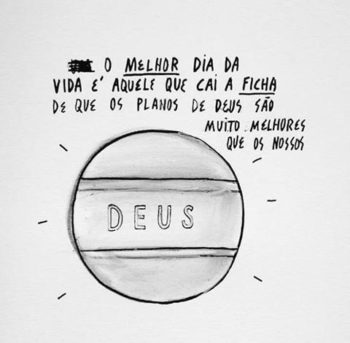 O MELHOR DIA DA
VIDA E' AQUELE QUE CAI A FICHA
DE QUE OS PLANOS DE DEUS SÃO
MUITO MELHORES
QUE OS NOSSOS
DEUS